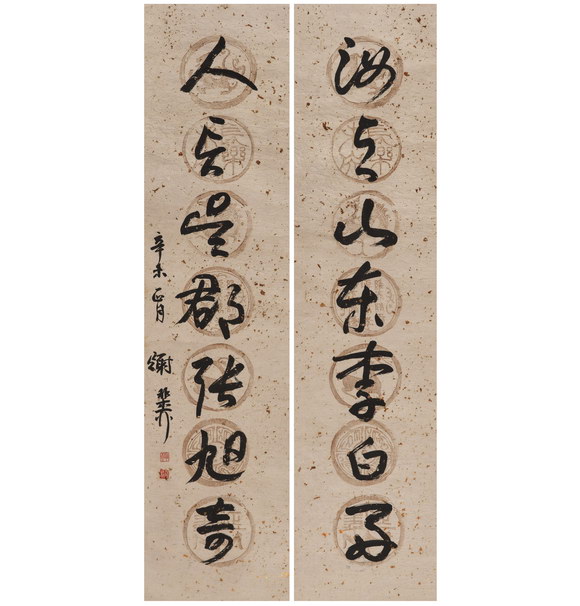 汝与山东李白好
人言吴郡张旭奇
辛未正月